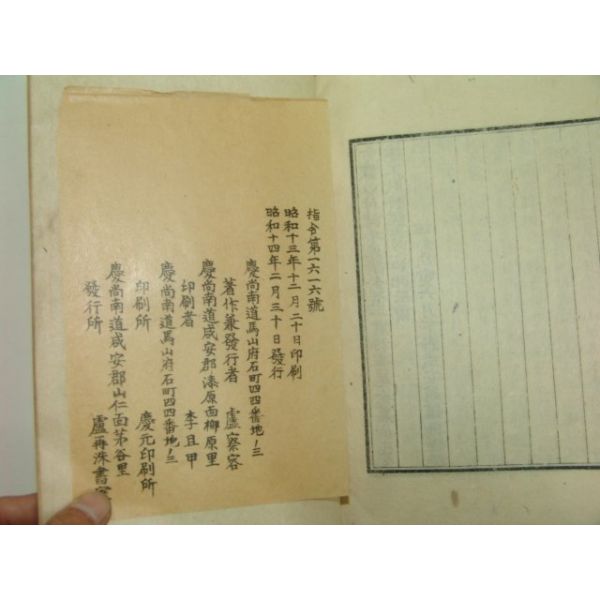 指令第一六一六號
昭和十三年十二月二十日印刷
昭和十四年二月三十日發行
慶尚南道馬山府石町四四番地ノ三
著作兼發行者 盧察容
慶尚南道咸安郡漆原面柳原里
印刷者 李且甲
慶尚南道馬山府石町四四番地ノ三
印刷所 慶元印刷所
慶尚南道咸安郡山仁面茅谷里
發行所 盧再洙書室